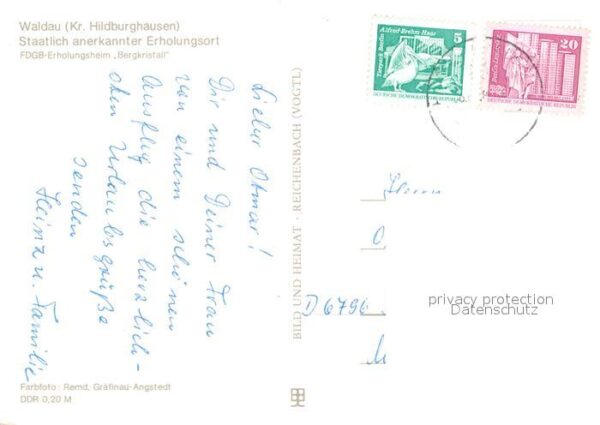 Waldau (Kr. Hildburghausen)
Staatlich anerkannter Erholungsort
FDGB-Erholungsheim „Bergkristall"
Lieber Otmar!
Dir und Deiner Frau
von einem schönen
Ausflug die herzlich-
sten Urlaubsgrüße
senden
Heinz u. Familie
Farbfoto: Remd, Gräfinau-Angstedt
DDR 0,20 M
BILD UND HEIMAT · REICHENBACH (VOGTL)
5
Alfred-Brehm-Haus
Tierpark Berlin
DEUTSCHE DEMOKRATISCHE REPUBLIK
20
DEUTSCHE DEMOKRATISCHE REPUBLIK
Herrn
O
D 6796
M
privacy protection
Datenschutz